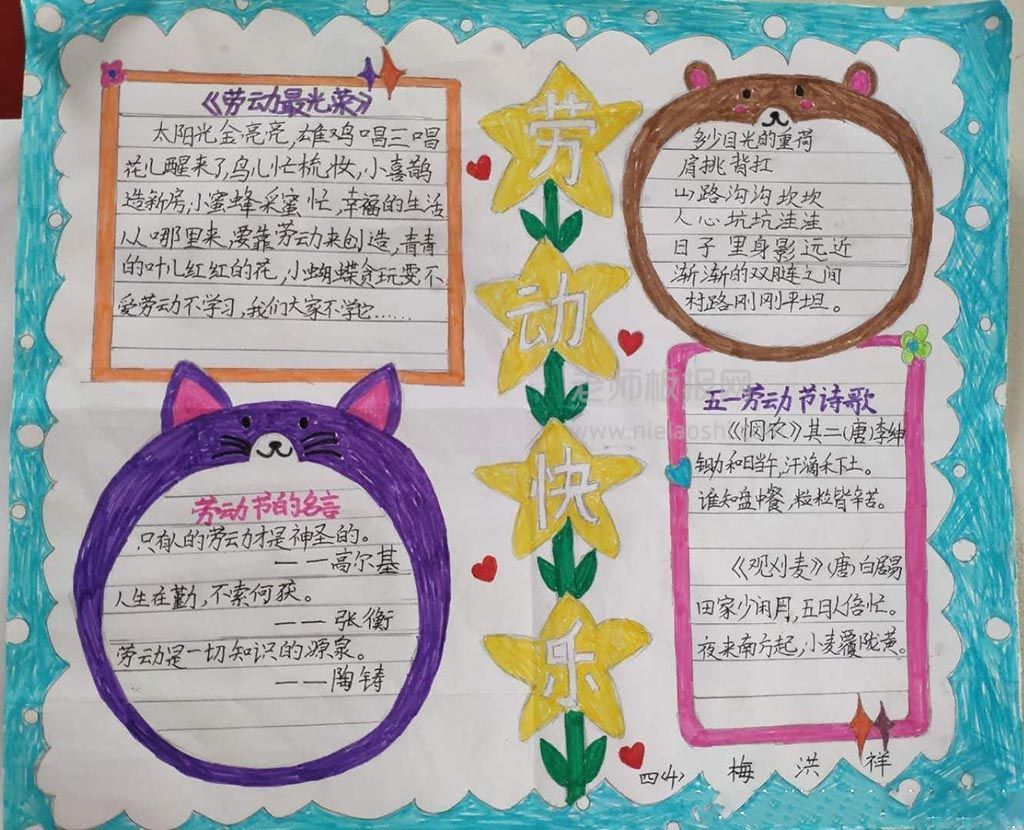 《劳动最光荣》
太阳光金亮亮,雄鸡唱三唱
花儿醒来了,鸟儿忙梳妆,小喜鹊
造新房,小蜜蜂采蜜忙,幸福的生活
从哪里来,要靠劳动来创造,青青
的叶儿红红的花,小蝴蝶贪玩耍不
爱劳动不学习,我们大家不学它……
劳动节的名言
只有人的劳动才是神圣的。
——高尔基
人生在勤,不索何获。
——张衡
劳动是一切知识的源泉。
——陶铸
劳
动
快
乐
多少目光的重荷
肩挑背扛
山路沟沟坎坎
人心坑坑洼洼
日子里身影远近
渐渐的双腿之间
村路刚刚平坦。
五一劳动节诗歌
《悯农》其二(唐)李绅
锄禾日当午,汗滴禾下土。
谁知盘中餐,粒粒皆辛苦。
《观刈麦》(唐)白居易
田家少闲月,五月人倍忙。
夜来南方起,小麦覆陇黄。
四(4) 梅洪祥
老师板报网
www.nielaosh